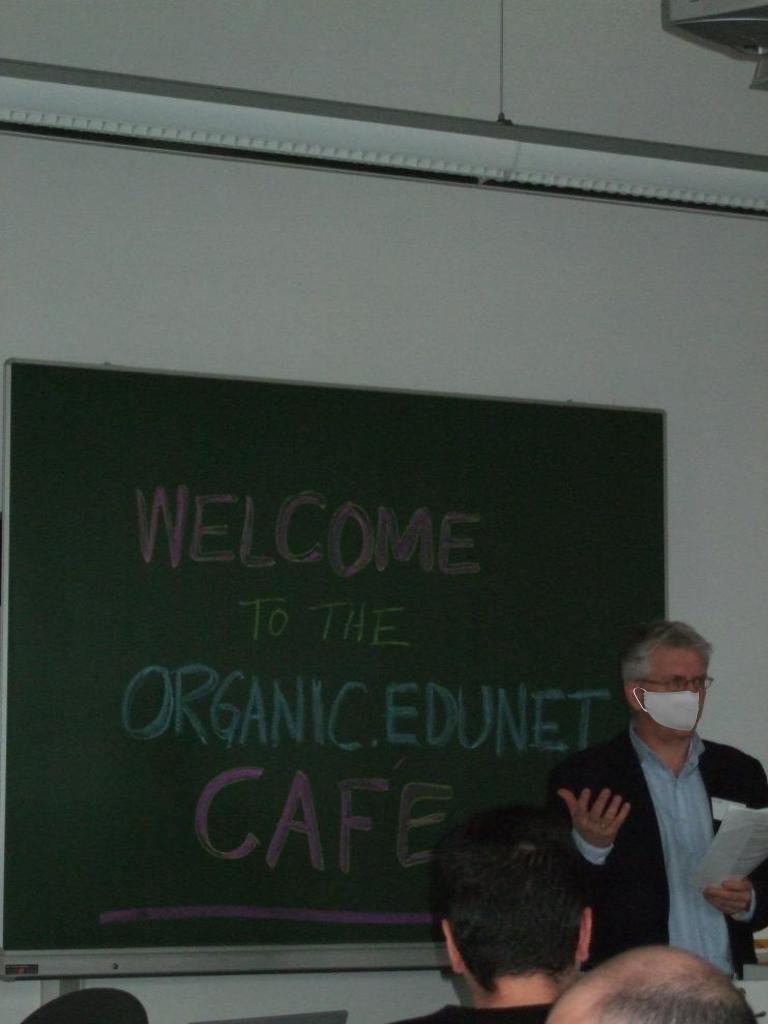 WELCOME
TO THE
ORGANIC.EDUNET
CAFÉ